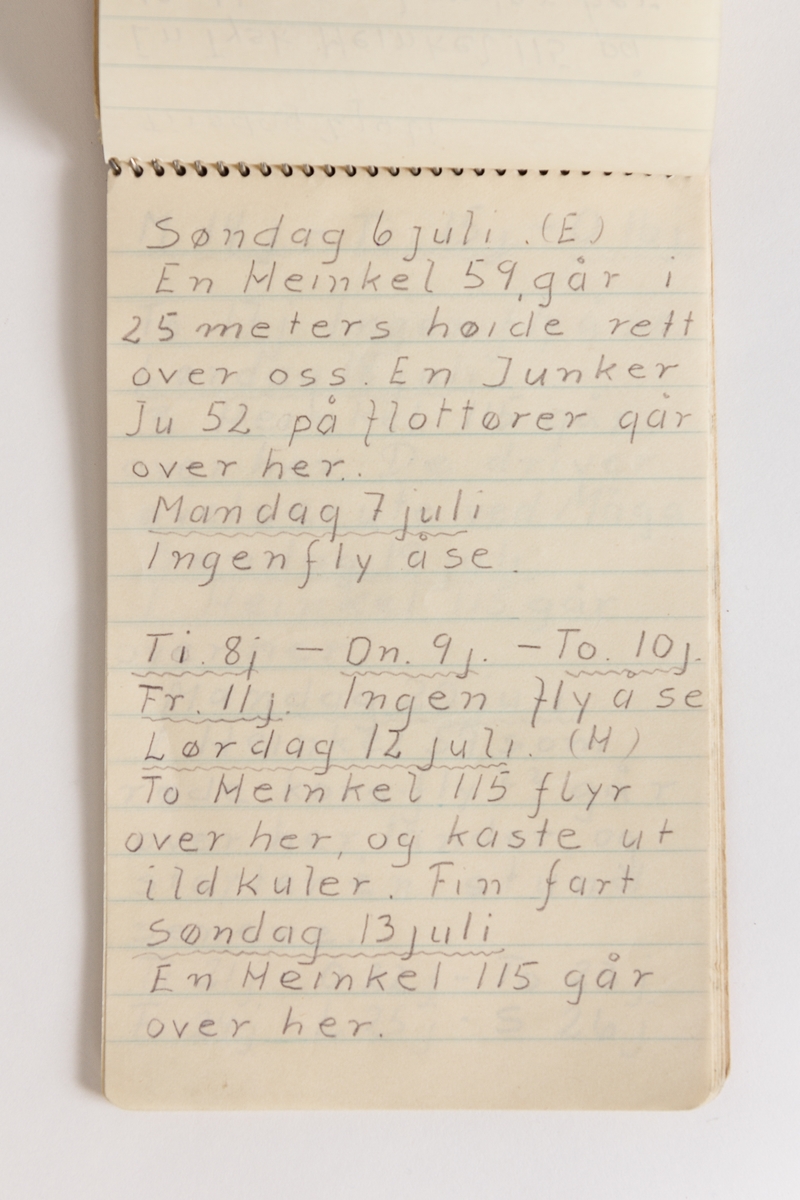 Søndag 6 juli. (E)
En Heinkel 59, går i
25 meters høide rett
over oss. En Junker
Ju 52 på flottører går
over her.
Mandag 7 juli
Ingen fly å se.
Ti. 8j – On. 9j. – To. 10j.
Fr. 11j. Ingen fly å se
Lørdag 12 juli. (H)
To Heinkel 115 flyr
over her, og kaste ut
ildkuler. Fin fart
Søndag 13 juli
En Heinkel 115 går
over her.